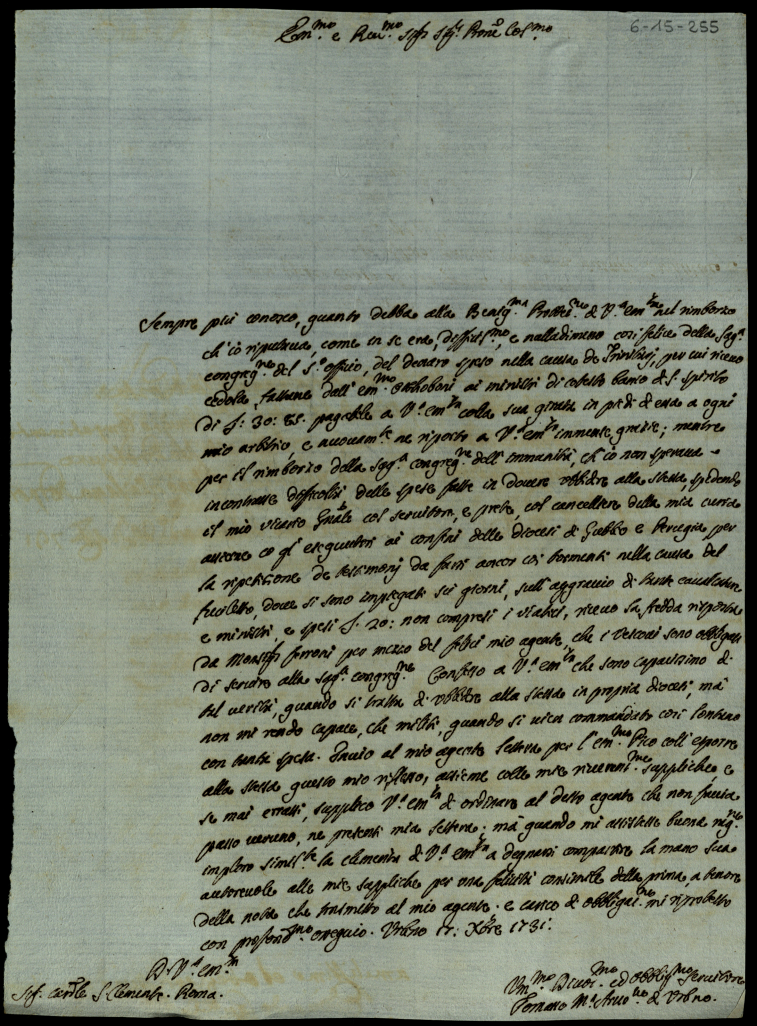 6-15-255
Em.mo e Rev.mo Sig.r Sig.r Prone Col.mo
Sempre più conosco, quanto debba alla Benig.ma Protez.ne di V.ra Em.za nel rimborzo
ch'io riputava, come in se era, diffizil.mo, e nulladimeno così felice della Sag.a
Congreg.ne del S.o Officio, del denaro speso nella causa de Trinitarj, per cui ricevo
cedola, fattane dall'Em.mo Otthoboni ai ministri di cotesto banco di S. Spirito
di s. 30: 85. pagabile a V.ra Em.za colla sua girata in piedi di essa a ogni
mio arbitrio, e nuovam.te ne riporto a V.ra Em.za immense grazie; mentre
per il rimborzo della Sag.a Congreg.ne dell'immunità, ch'io non sperava
incontrasse difficoltà delle spese fatte in dovere ubbidire alla stessa, spedendo
il mio Vicario Gñale col servitore, e prete, col cancelliere della mia curia
assieme co gl'esequutori ai confini delle Diocesi di Gubbio e Perugia per
la ripetizione de testimonj da farsi ancor coi tormenti nella causa del
, dove si sono impiegati sei giorni, sull'aggravio di tante cavalcature
e ministri, e spesi s. 20: non compresi i viatici, ricevo la fredda risposta
da Monsig.r Ferroni per mezzo del Felici mio agente, che i Vescovi sono obbligati
di servire alla Sag.a Congreg.ne Confesso a V.ra Em.za che sono capacissimo di
tal verità, quando si tratta di ubbidire alla stessa in propria diocesi, mà
non mi rendo capace, che militi, quando si vien commandato così lontano
con tanta spesa. Invio al mio agente lettera per l'Em.mo Pico coll'esporre
alla stessa questo mio riflesso, assieme colle mie riverenti.me suppliche, e
se mai errassi, supplico V.ra Em.za di ordinare al detto agente che non faccia
passo veruno, ne presenti mia lettera; mà quando mi assistesse buona rag.ne
imploro simil.te la clemenza di V.ra Em.za a degnarsi compartire la mano sua
autorevole alle mie suppliche per una felicità consimile della prima, a tenore
della nota che trasmetto al mio agente. e carico di obbligaz.ni mi riprotesto
con profond.mo ossequio. Urbino 17: Xbre 1731.
Di V.ra Em.za
Sig. Card.le S. Clemente. Roma.
Um.mo Divot.mo ed Obblig.mo Servitore
Tomaso M.a Arciv.vo di Urbino.